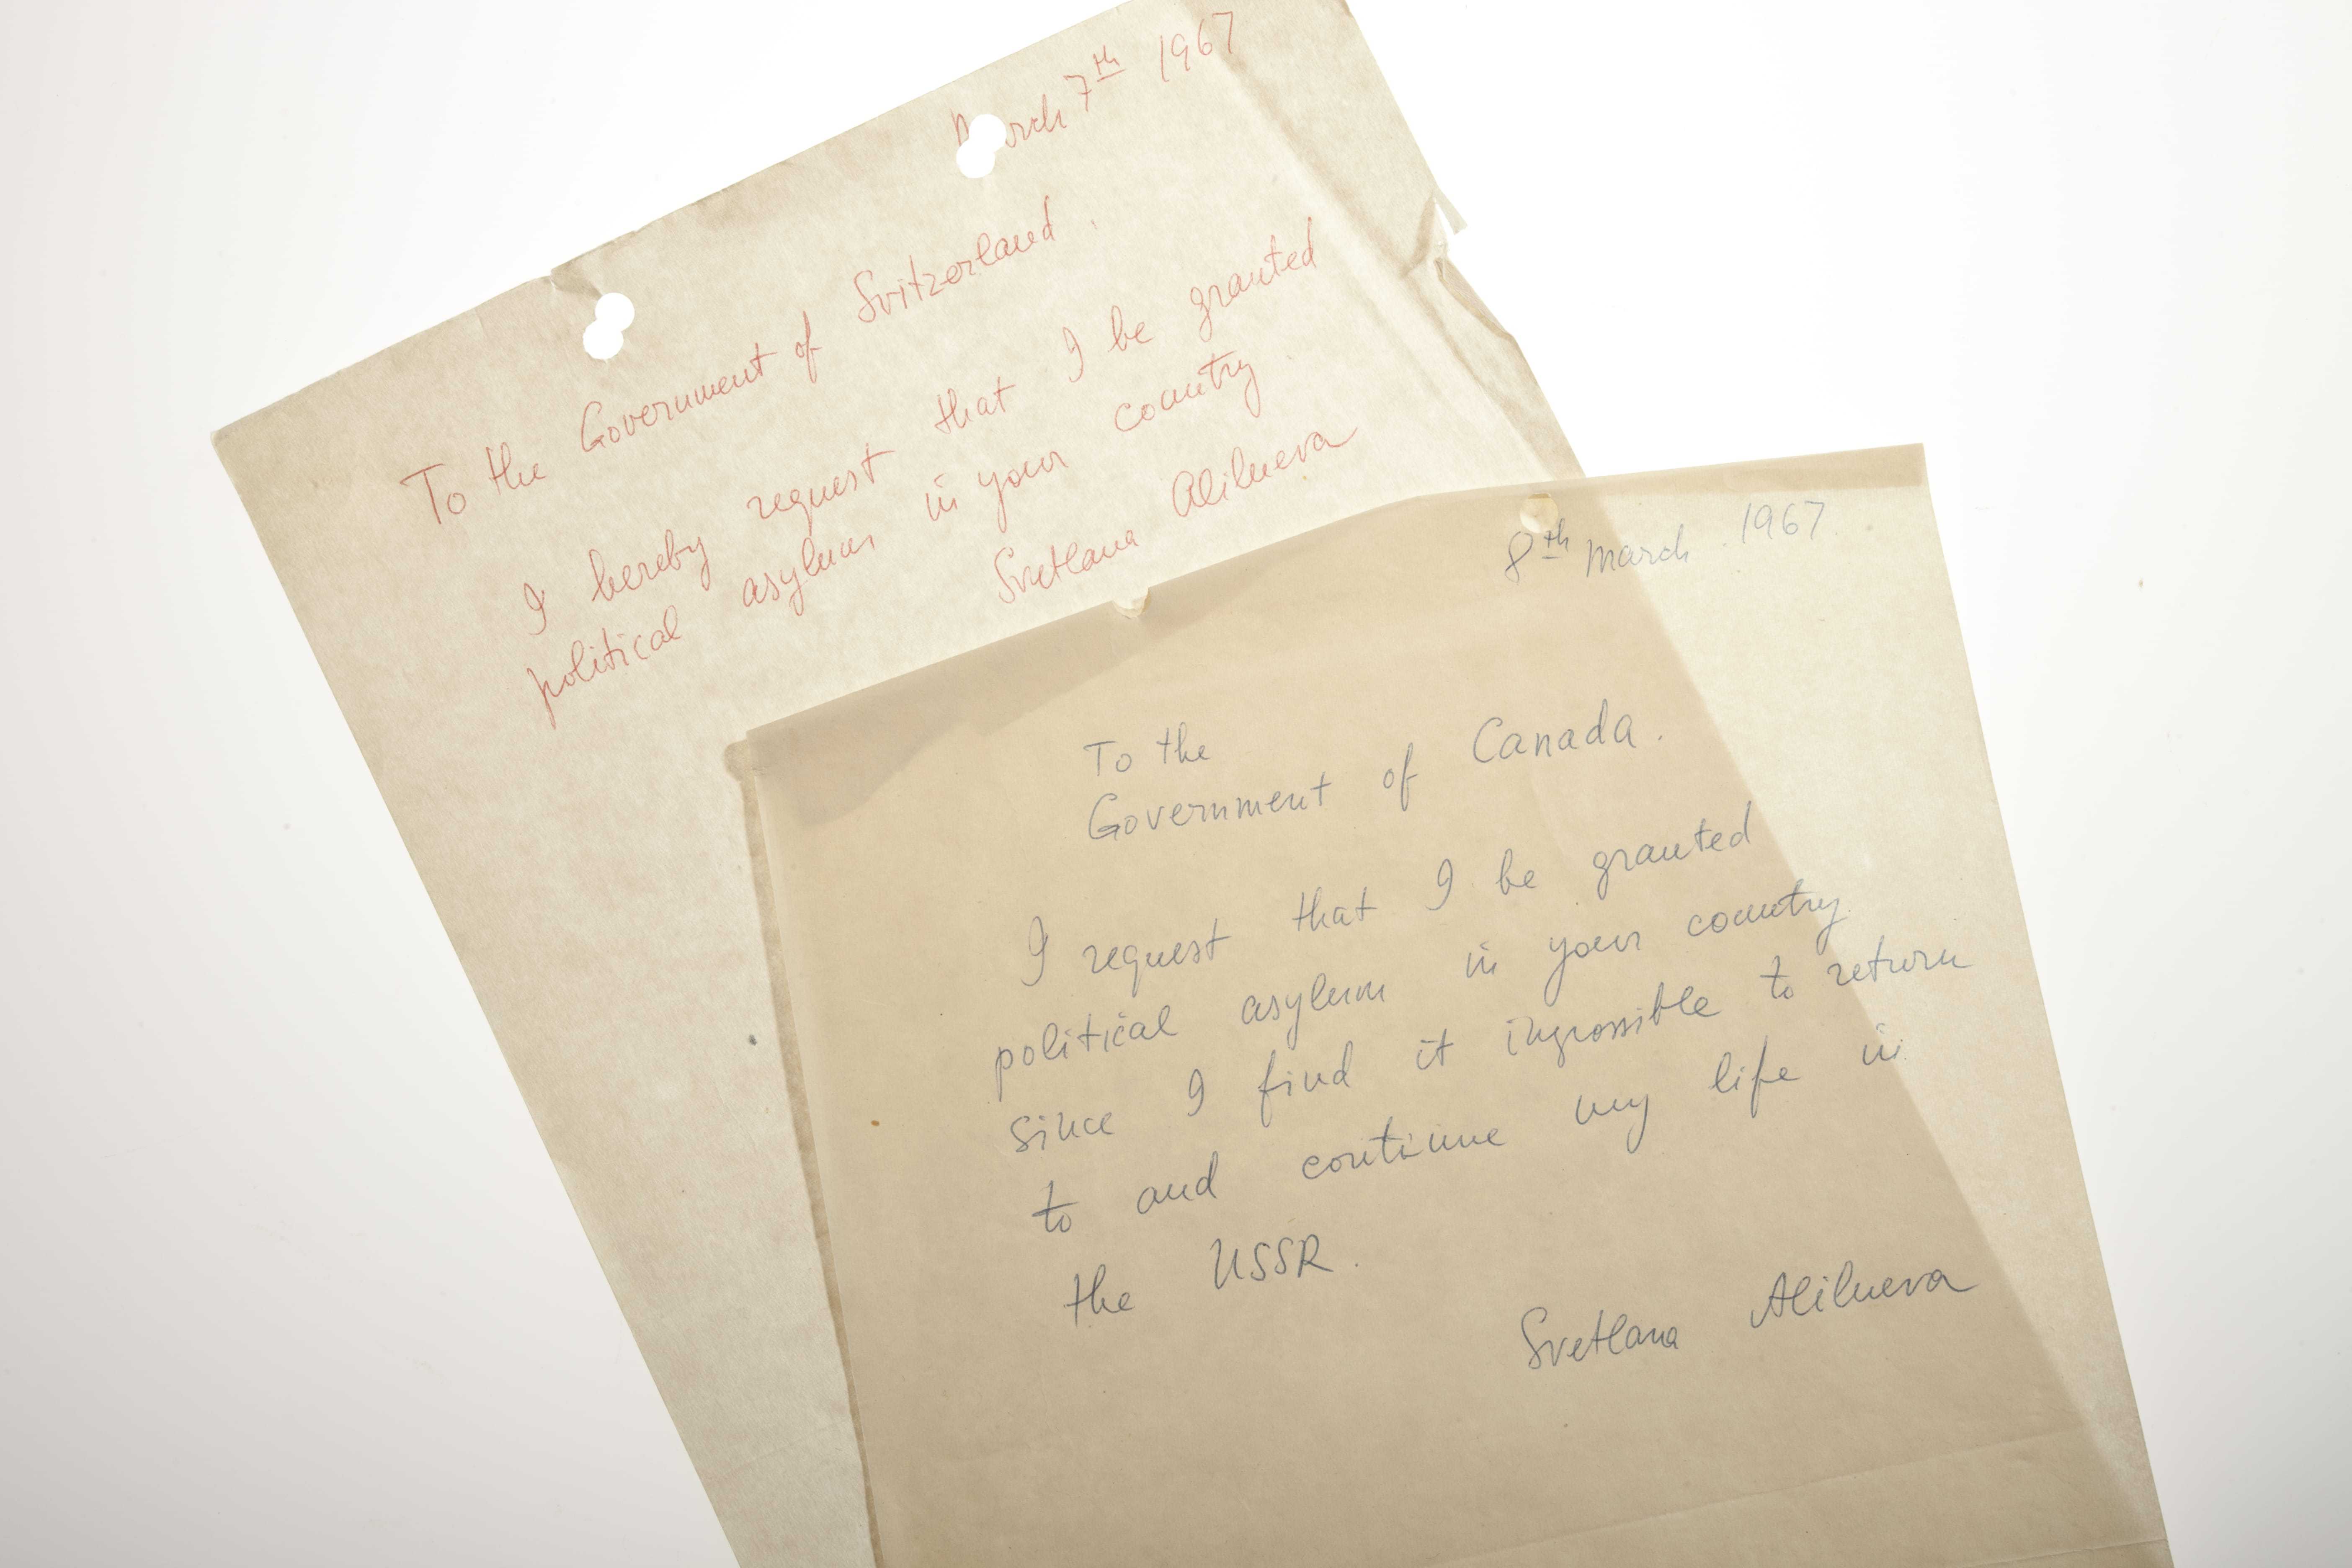 March 7th 1967
To the Government of Svitzerland.
I hereby request that I be granted
political asylum in your country.
Svetlana Alilueva
8th March 1967.
To the
Government of Canada.
I request that I be granted
political asylum in your country
since I find it impossible to return
to and continue my life in
the USSR.
Svetlana Alilueva